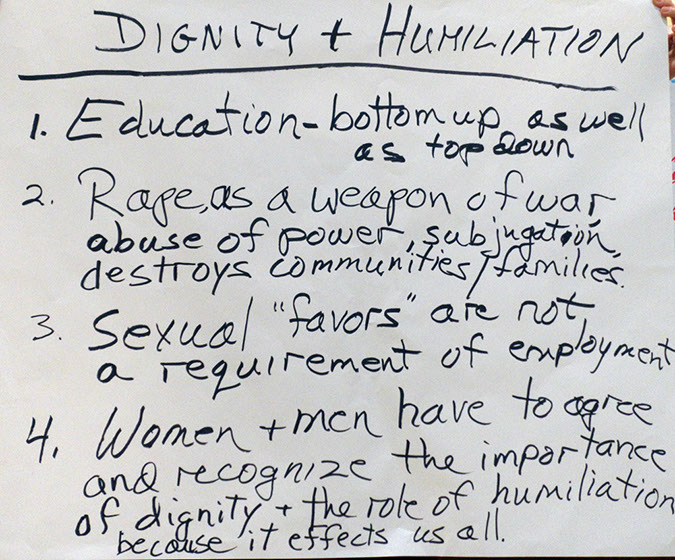 DIGNITY + HUMILIATION
1. Education - bottom up as well
as top down
2. Rape, as a weapon of war
abuse of power, subjugation,
destroys communities/families.
3. Sexual "favors" are not
a requirement of employment
4. Women + men have to agree
and recognize the importance
of dignity + the role of humiliation
because it effects us all.